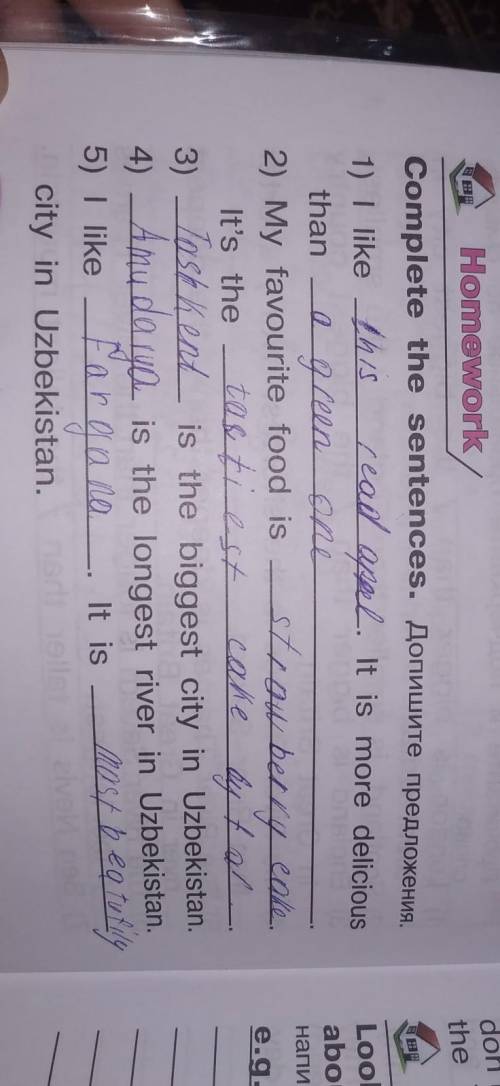 Homework
Complete the sentences. Допишите предложения.
1) I like this read appl. It is more delicious
than a green one.
2) My favourite food is strowberry cake.
It's the tastiest cake.
3) Toshkent is the biggest city in Uzbekistan.
4) Amudarya is the longest river in Uzbekistan.
5) I like Fargana. It is most beatufily
city in Uzbekistan.
don
the
Loo
abo
напи
e.g.